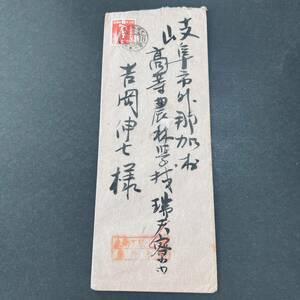 岐阜市外那加村
高等農林学校瑞天寮内
吉岡伸七様